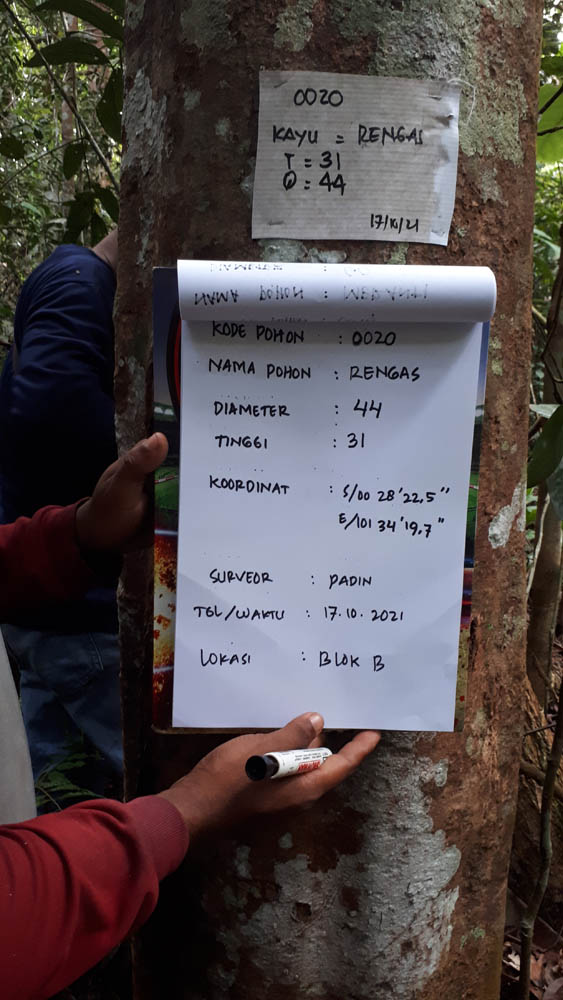 0020
KAYU = RENGAS
T = 31
Q = 44
17/10/21
KODE POHON : 0020
NAMA POHON : RENGAS
DIAMETER : 44
TINGGI : 31
KOORDINAT : S/00 28'22,5"
E/101 34'19,7"
SURVEOR : PADIN
TGL/WAKTU : 17.10.2021
LOKASI : BLOK B